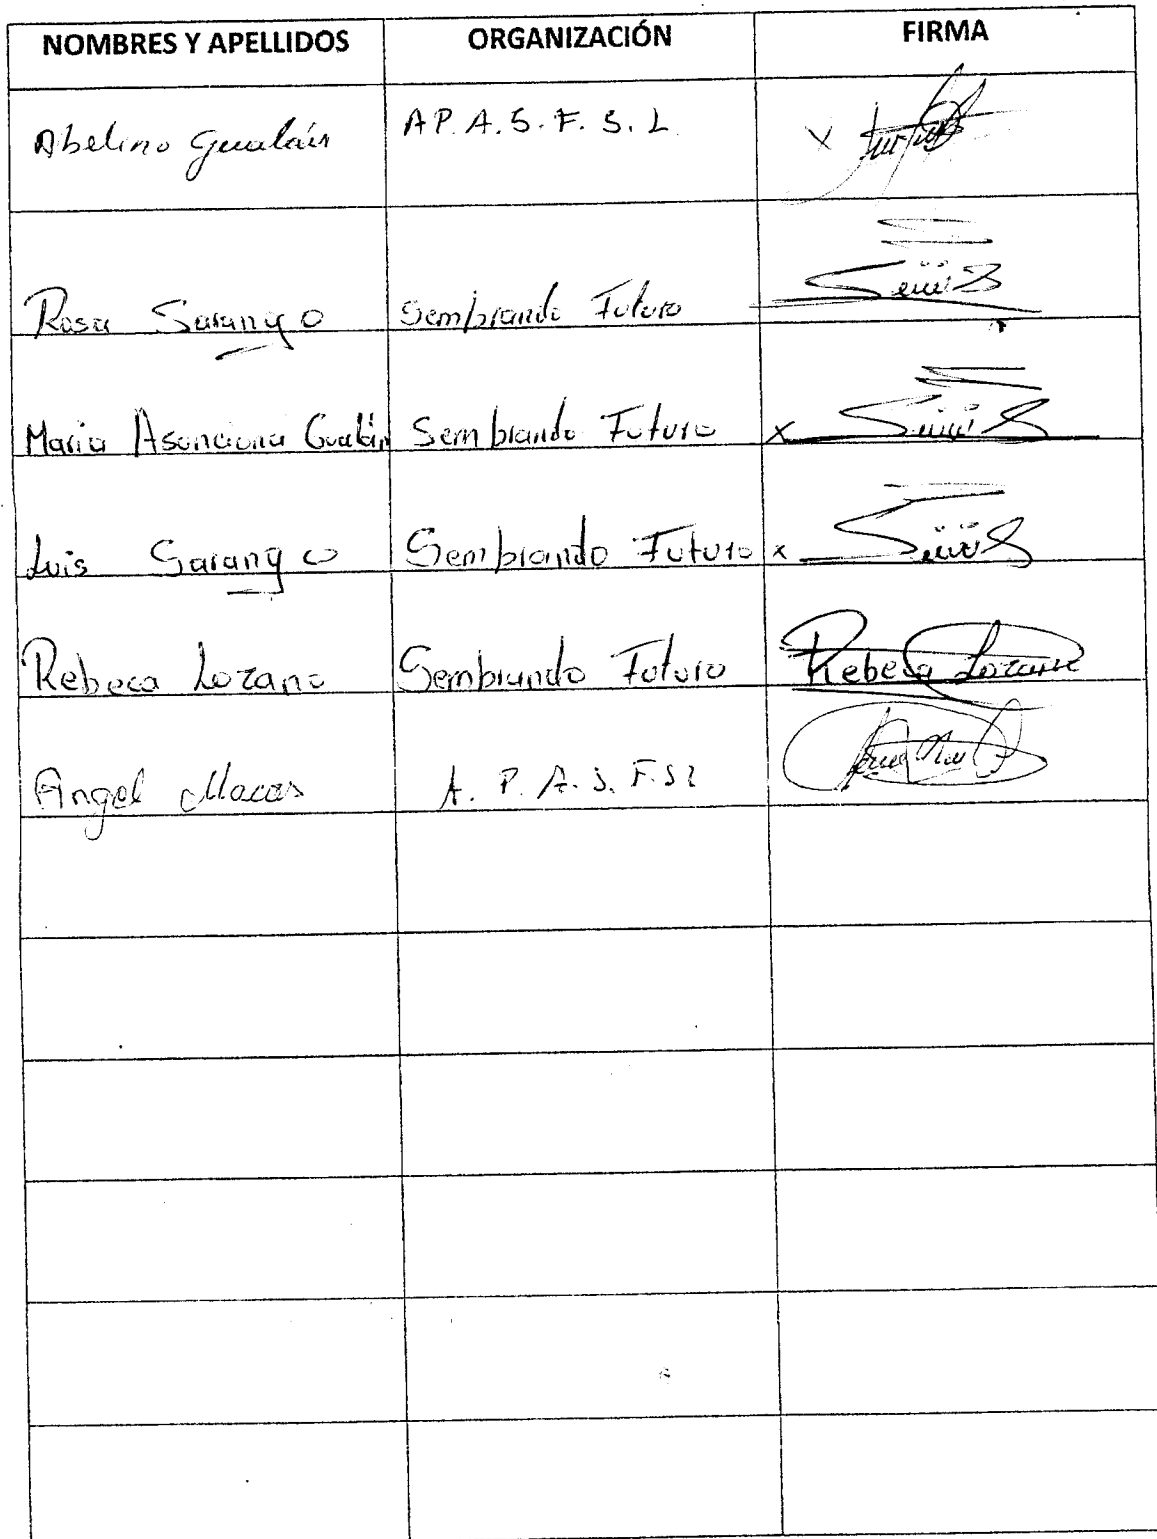 NOMBRES Y APELLIDOS ORGANIZACIÓN FIRMA
Abelino Gualán A.P.A.S.F.S.L x
Rosa Sarango Sembrando Futuro
Maria Asunciona Gualán Sembrando Futuro x
Luis Sarango Sembrando Futuro x
Rebeca Lozano Sembrando Futuro Rebeca Lozano
Angel Macas A.P.A.S.F.SL